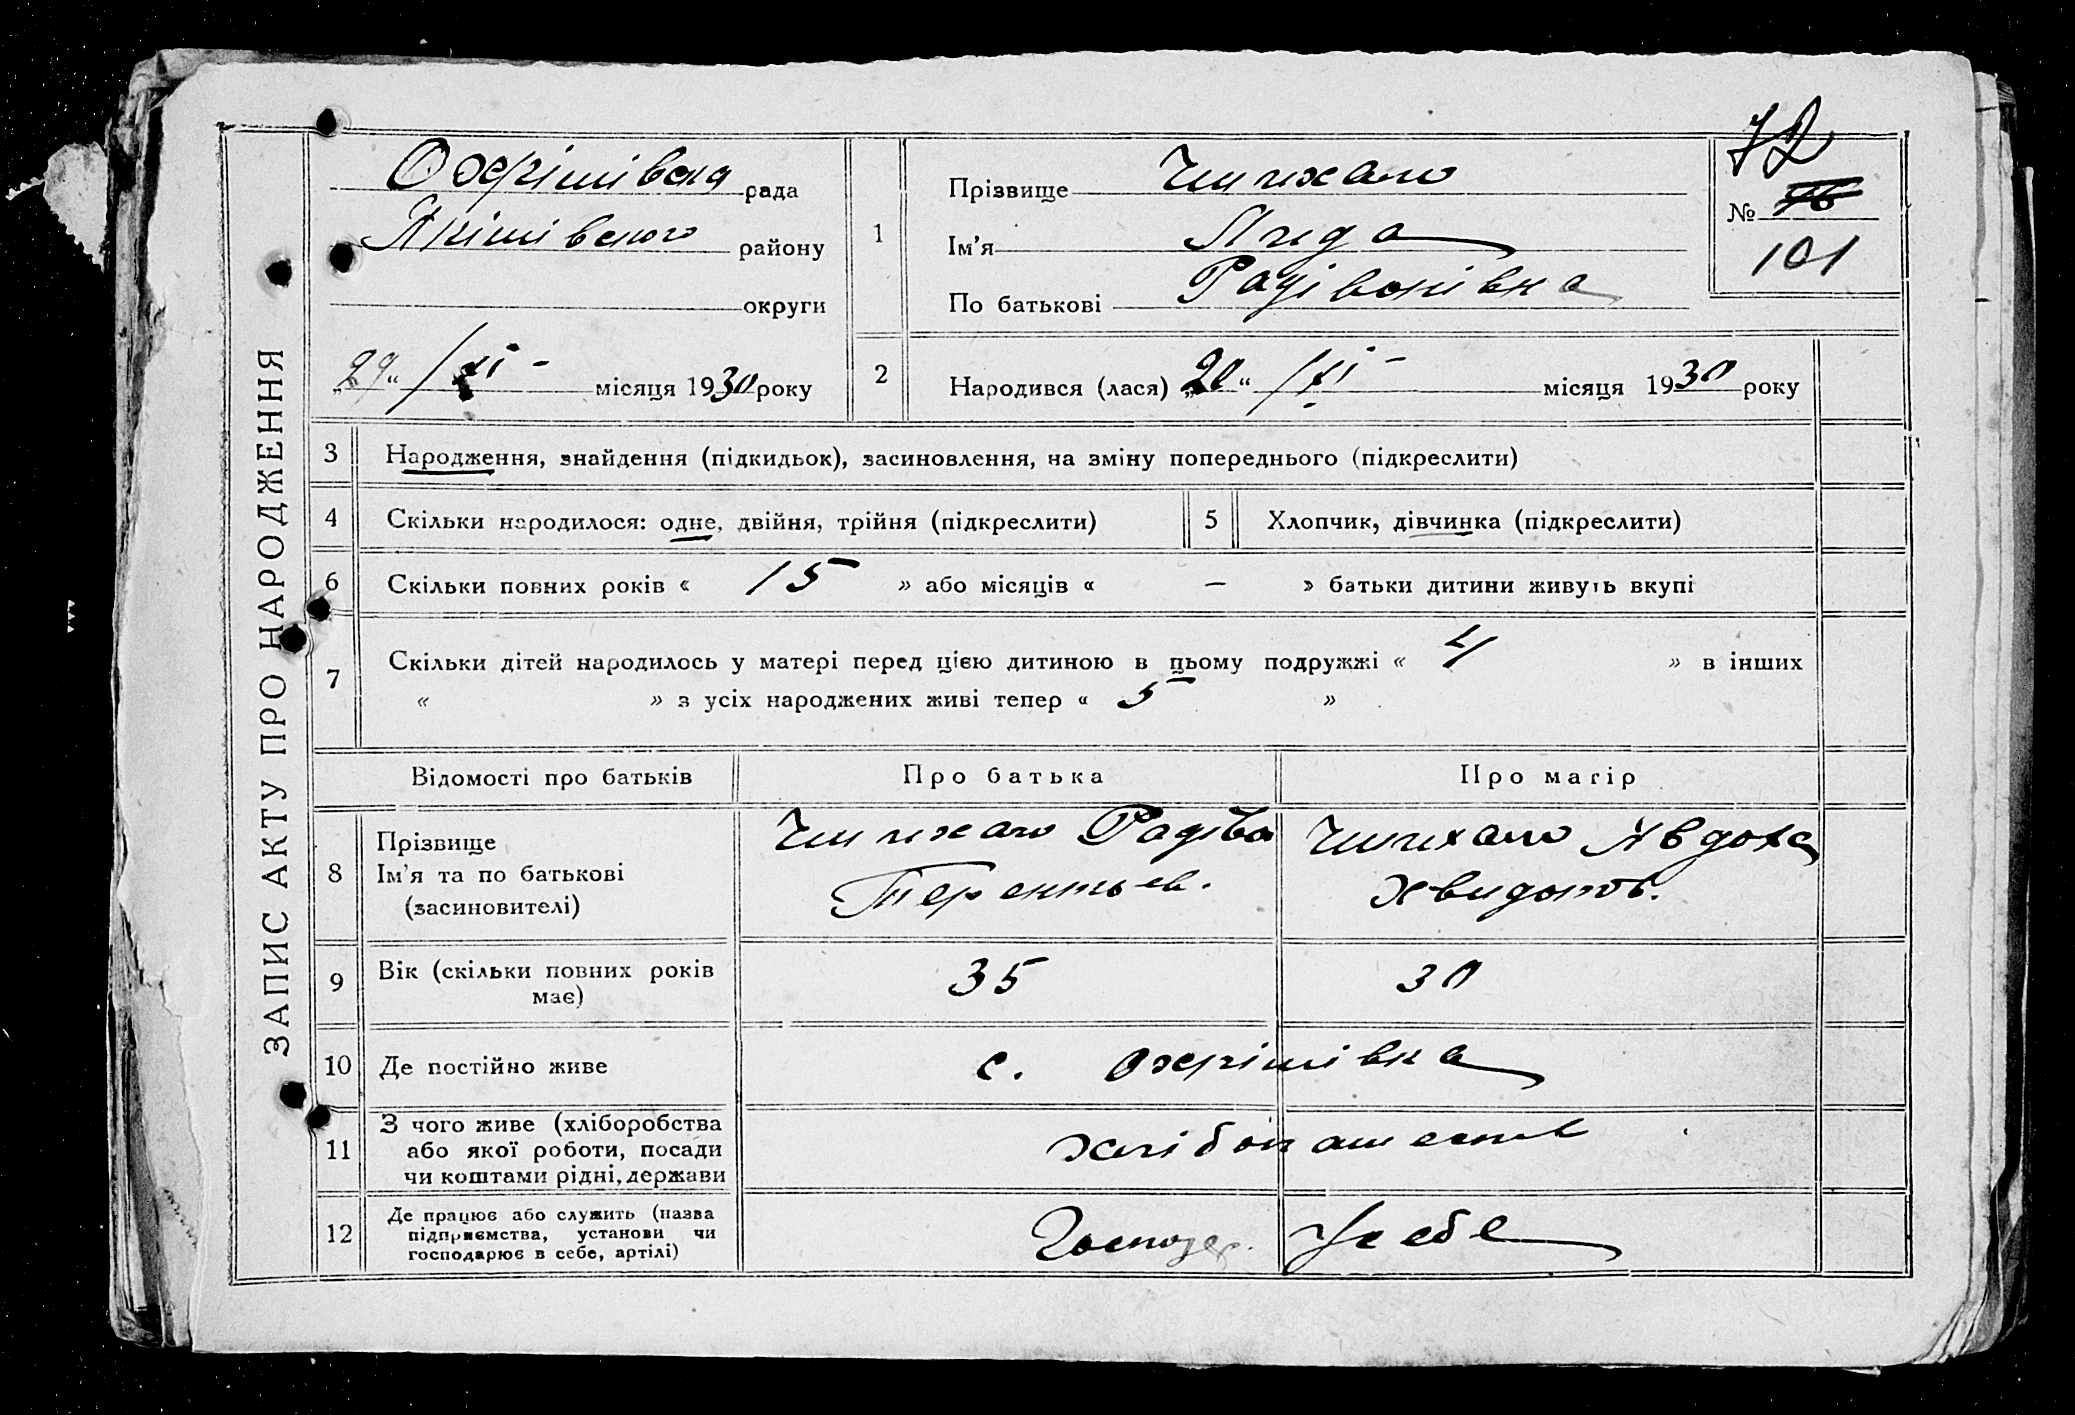 ЗАПИС АКТУ ПРО НАРОДЖЕННЯ
Охрімівська рада
Якімівського району
округи
„29“ /XI - місяця 1930 року
1
Прізвище
Ім'я Лида
По батькові Радівонівна
72
№ 76
101
2 Народився (лася) „20“ /XI - місяця 1930 року
3 Народження, знайдення (підкидьок), засиновлення, на зміну попереднього (підкреслити)
4 Скільки народилося: одне, двійня, трійня (підкреслити)
5 Хлопчик, дівчинка (підкреслити)
6 Скільки повних років « 15 » або місяців « – » батьки дитини живуть вкупі
7 Скільки дітей народилось у матері перед цією дитиною в цьому подружжі « 4 » в інших
« » з усіх народжених живі тепер « 5 »
Відомості про батьків
Про батька
Про матір
8 Прізвище
Ім'я та по батькові
(засиновителі)
Радівон
Терентьев.
Авдотя
9 Вік (скільки повних років
має)
35
30
10 Де постійно живе
с. Охрімівка
11 З чого живе (хліборобства
або якої роботи, посади
чи коштами рідні, держави
хлібопашест
12 Де працює або служить (назва
підприємства, установи чи
господарює в себе, артілі)
Господар. У себе